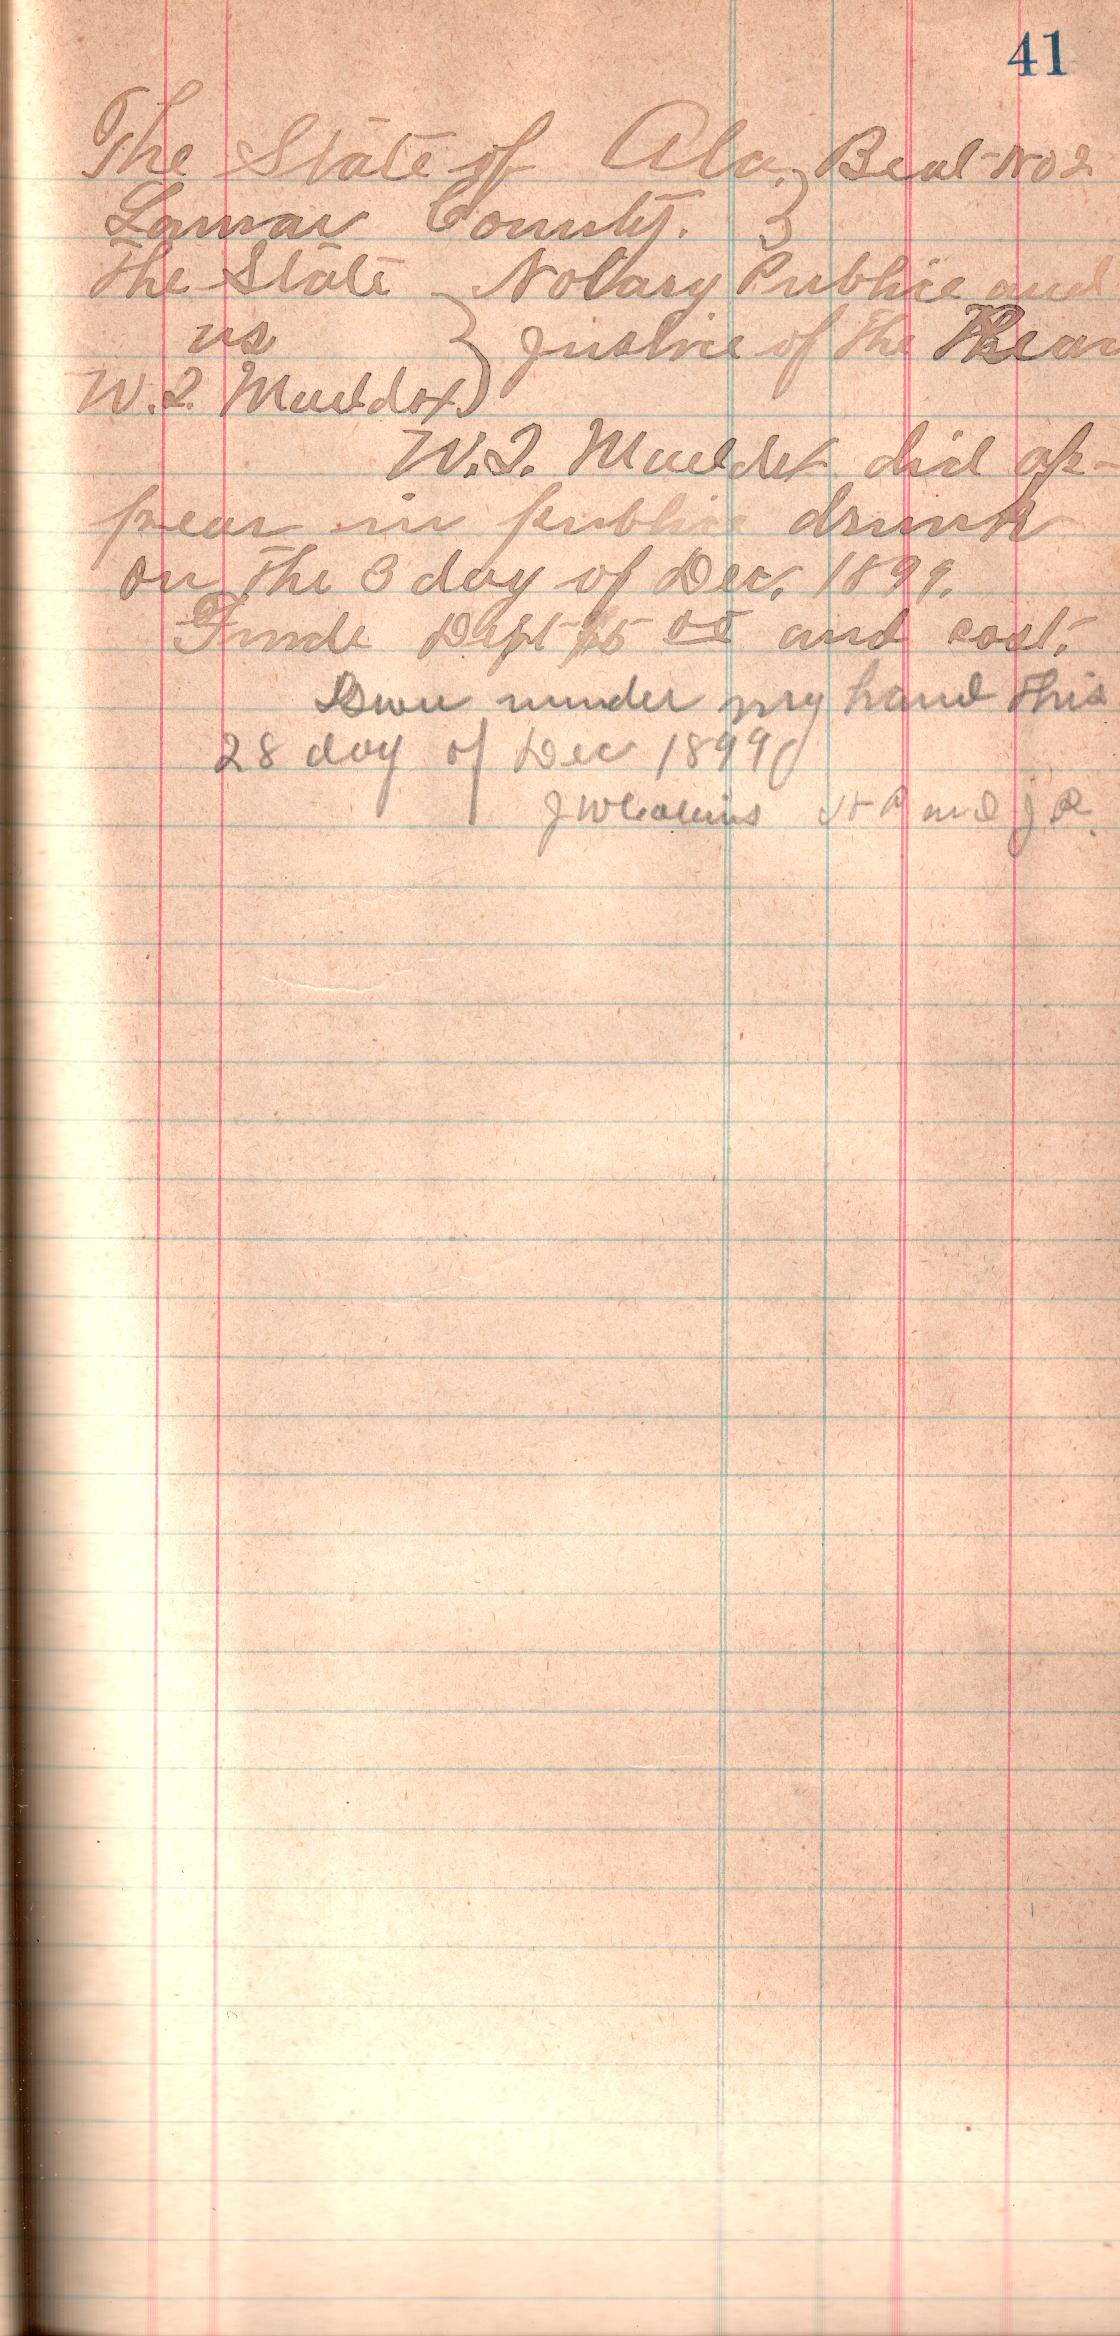 41
The State of Ala. } Beat No 2
Lamar County. }
The State } Notary Public and
vs } Justice of the
W.T. Maddox }
W.T. Maddox did ap-
pear in public drunk
on the 3 day of Dec. 1899.
Finde Deft $5 00 and cost.
Given under my hand this
28 day of Dec 1899
J W N P and J. P.